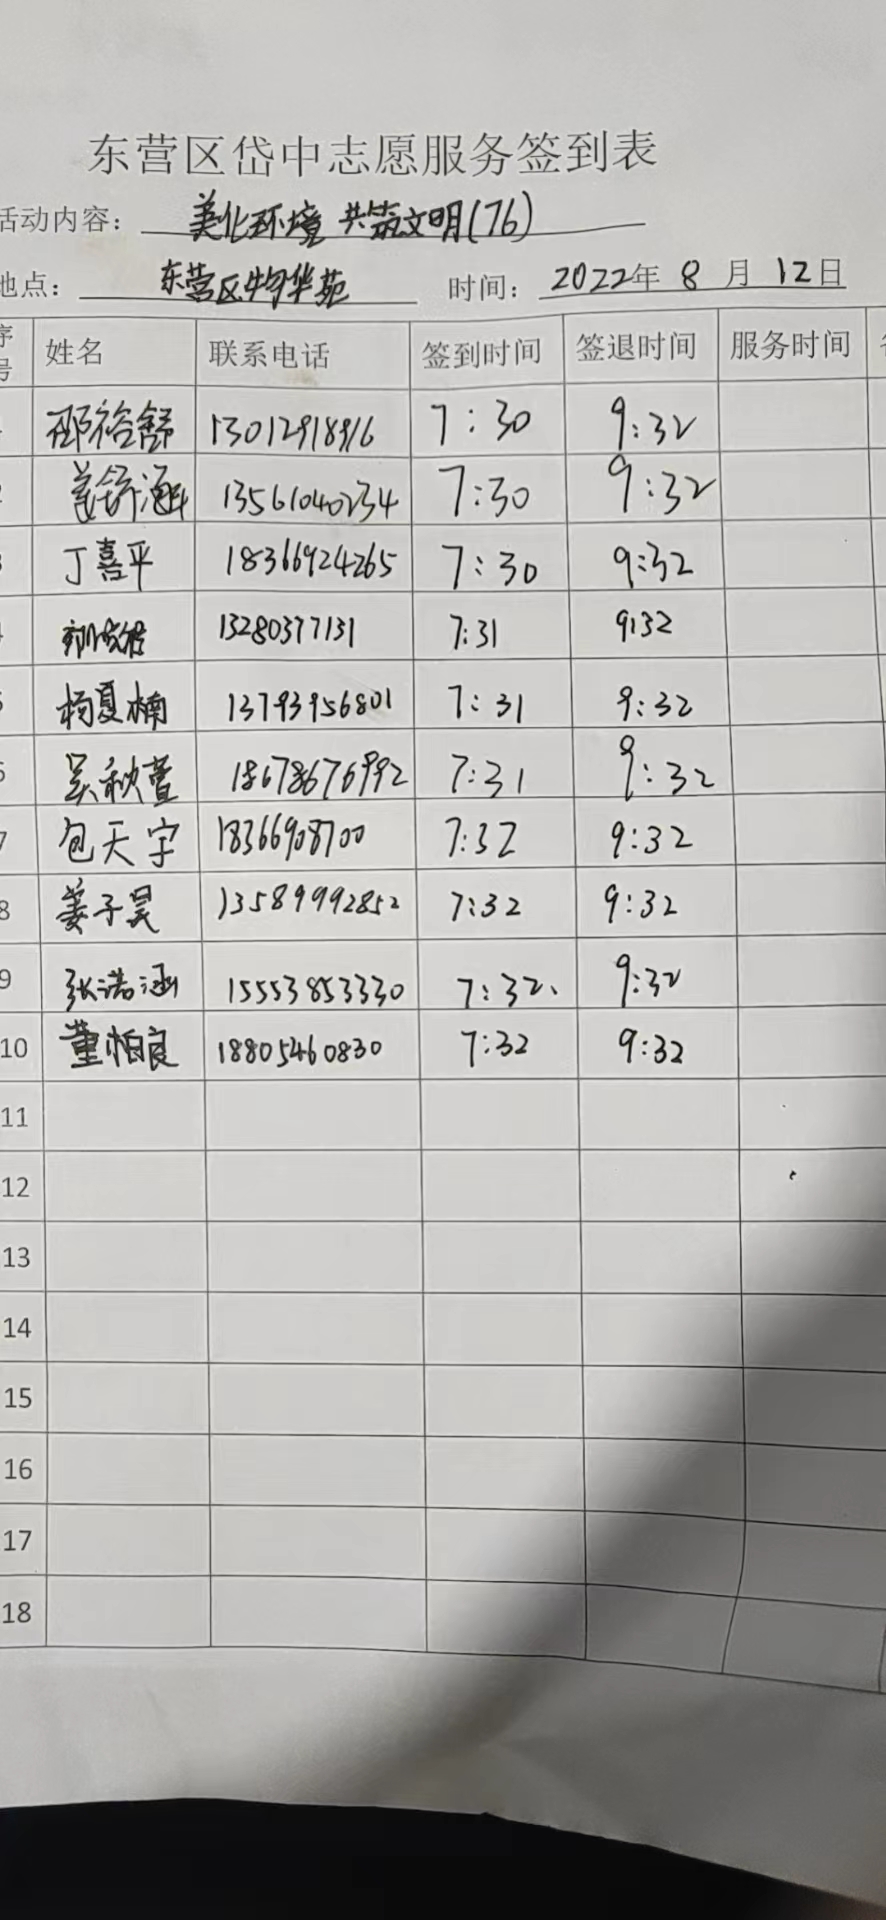 东营区岱中志愿服务签到表
活动内容： 美化环境 共筑文明(76)
地点： 东营区物华苑 时间： 2022年 8 月 12日
序号 姓名 联系电话 签到时间 签退时间 服务时间
邵裕舒 13012918916 7:30 9:32
姜舒涵 13561040234 7:30 9:32
丁喜平 18366924265 7:30 9:32
13280377131 7:31 9:32
杨夏楠 13793956801 7:31 9:32
6 吴秋萱 18678676992 7:31 9:32
7 包天宇 18366908700 7:32 9:32
8 姜子昊 13589992852 7:32 9:32
9 张浩涵 15553853330 7:32、 9:32
10 董怡良 18805460830 7:32 9:32
11
12
13
14
15
16
17
18